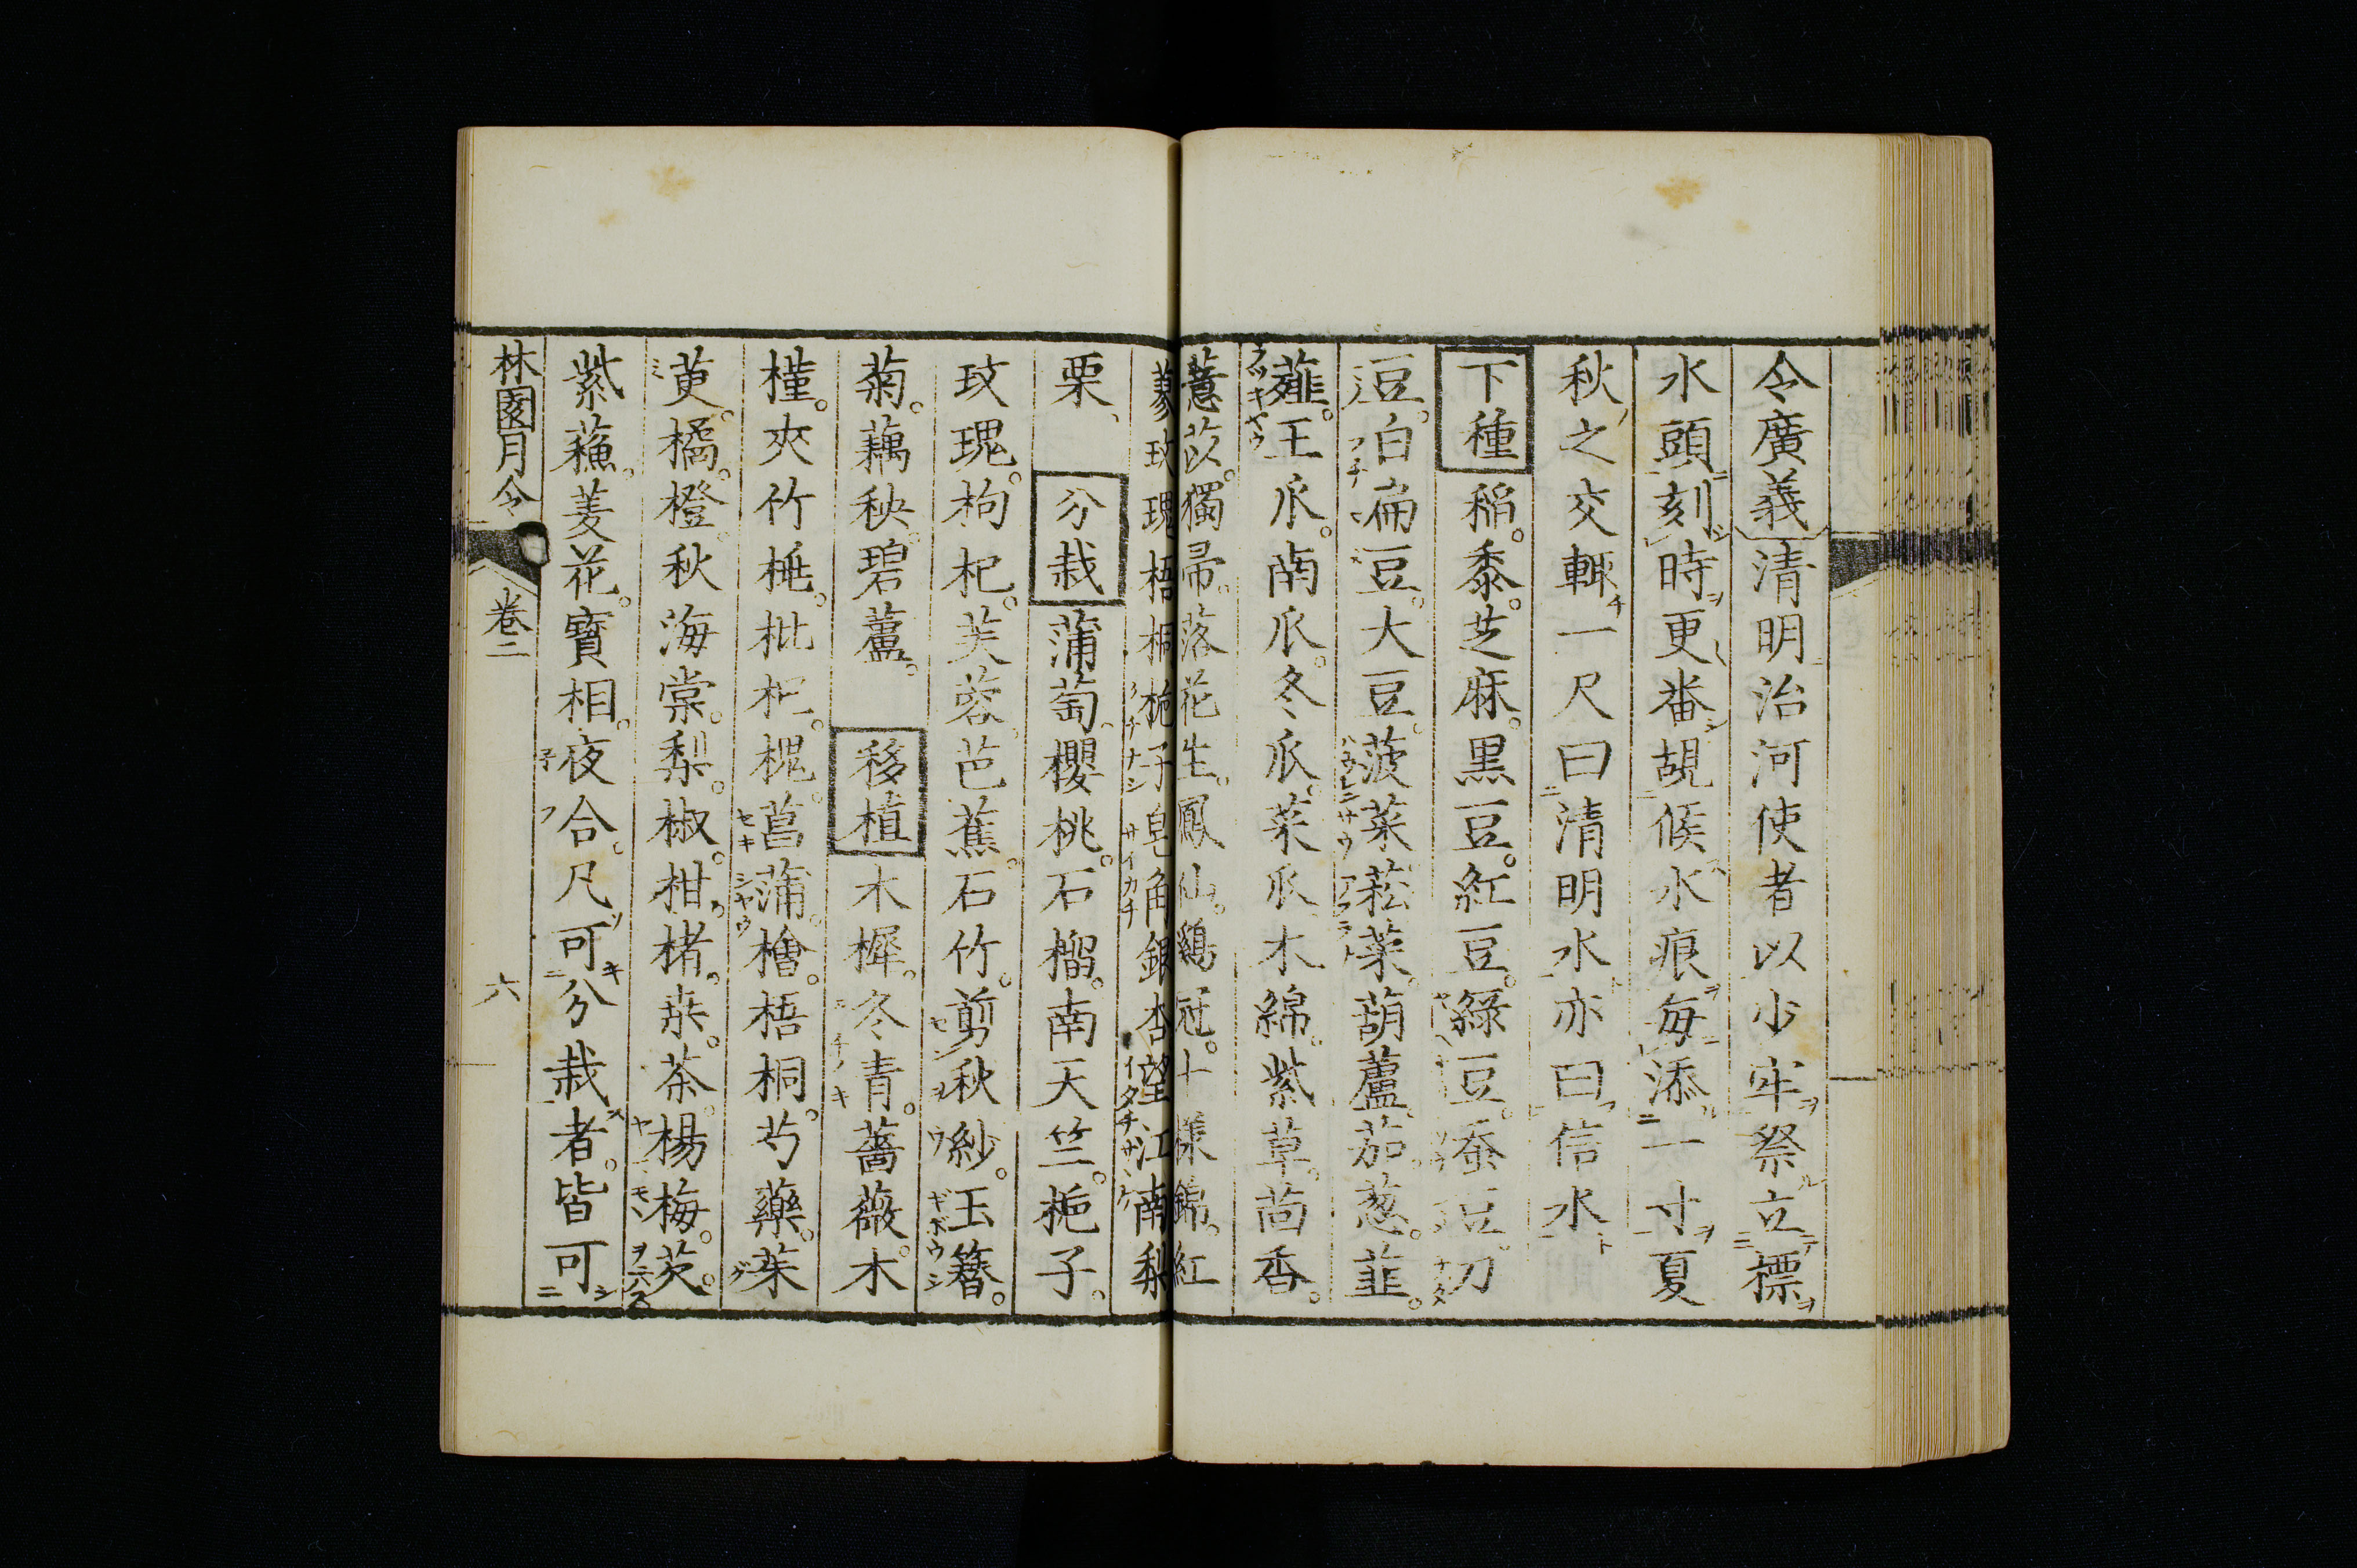 令廣義清明治河使者以少牢祭立標
水頭刻時更番覘候水痕每添一寸夏
秋之交輙一尺曰清明水亦曰信水
下種 稲。黍。芝麻。黒豆。紅豆。綠豆。蚕豆。刀
豆。白扁豆。大豆。菠菜。菘菜。葫蘆。茄。葱。韮。
薤。王瓜。南瓜。冬瓜。菜瓜。木綿。紫草。茴香。
薏苡。獨帚。落花生。鳳仙。鷄冠。十様錦。紅
蓼玫瑰梧桐梔子皂角銀杏望江南梨
栗、 分栽 蒲萄。櫻桃。石榴。南天竺。梔子。
玫瑰。枸杞。芙蓉。芭蕉。石竹。剪秋紗。玉簪。
菊。藕秧。碧蘆。 移植 木樨。冬青。薔薇。木
槿。夾竹桃。枇杷。槐。菖蒲。檜。梧桐。芍藥。茱
萸。橘。橙。秋海棠。梨。椒。柑。楮。桒。茶。楊梅。芡。
紫蘓。姜花。寶相。夜合。凡可分栽者。皆可
林園月令 卷二 六